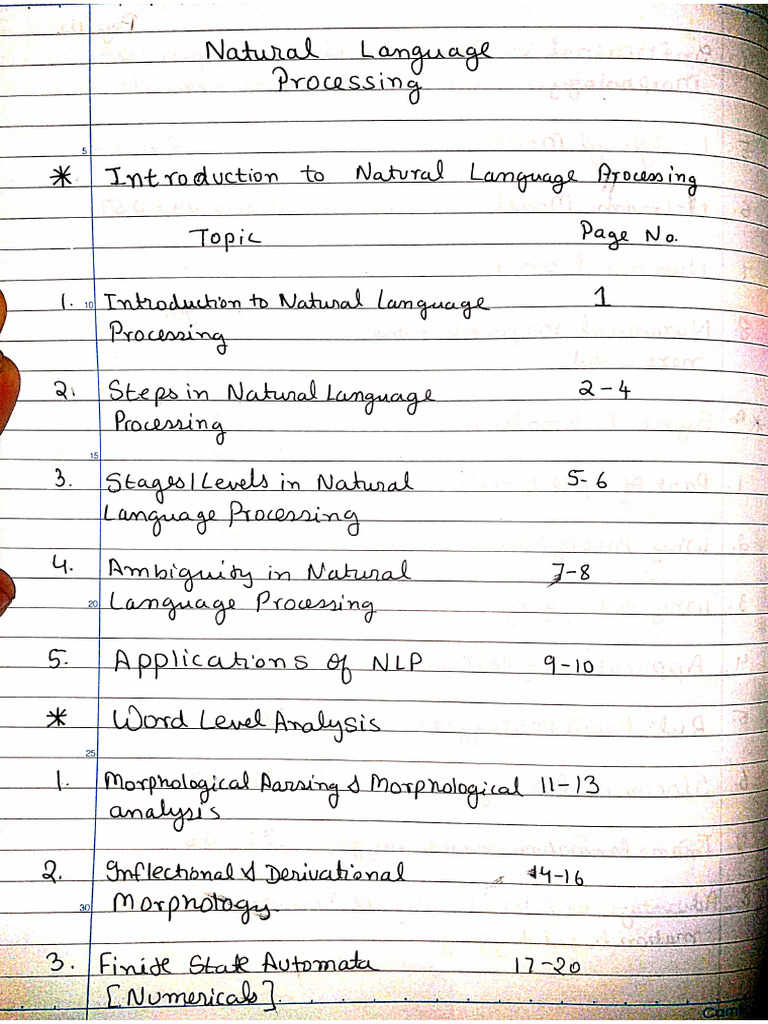 Natural Language
Processing
5
* Introduction to Natural Language Processing
Topic Page No.
1. 10 Introduction to Natural Language 1
Processing
2. Steps in Natural Language 2-4
Processing
15
3. Stages/Levels in Natural 5-6
Language Processing
4. Ambiguity in Natural 7-8
20 Language Processing
5. Applications of NLP 9-10
* Word Level Analysis
25
1. Morphological Parsing & Morphological 11-13
analysis
2. Inflectional & Derivational 14-16
30 Morphology
3. Finite State Automata 17-20
[Numericals].